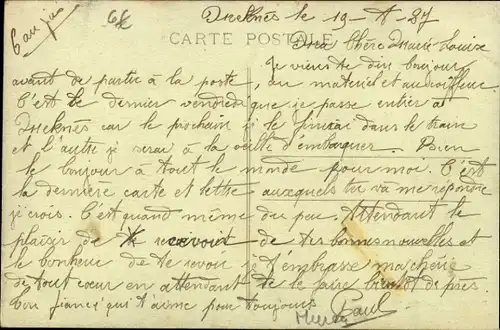 6 an jui
Mecknès le 19-8-27
CARTE POSTALE
Ma Chère Marie-Louise
Je viens te dire bonjour
avant de partir à la poste, au matériel et au coiffeur.
C'est le dernier vendredi que je passe entier à
Mecknès car le prochain je le finirai dans le train
et l'autre je serai à la veille d'embarquer. Bien
le bonjour à tout le monde pour moi. C'est
la dernière carte et lettre auxquels tu va me répondre
je crois. C'est quand même du peu. Attendant le
plaisir de recevoir de tes bonnes nouvelles et
le bonheur de te revoir je t'embrasse ma chérie
de tout cœur en attendant de le faire bientôt de près.
Ton fiancé qui t'aime pour toujours
Paul